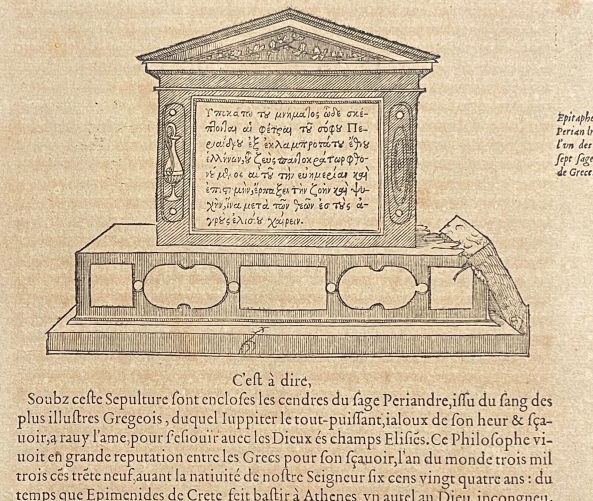 Ὑποκάτω τȣ μνήματος ὧδε σκέ-
ἐξ ἐκλαμπροτάτȣ
ἑλλήνων,
τὴν εὐημερίαν καὶ
τὴν ζοὴν καὶ ψυ-
χὴν, ἵνα μετὰ τῶν θεῶν ἐσ τȣς ἀ-
γρȣς ἐλισȣ χαίρειν.
Epitaphe
Perian
l'vn des
sept sage
de Grece
C'est à dire,
Soubz ceſte Sepulture ſont encloſes les cendres du ſage Periandre, iſſu du ſang des
plus illuſtres Gregeois, duquel Iuppiter le tout-puiſſant, ialoux de ſon heur & ſça-
uoir, a rauy l'ame, pour ſ'eſiouir auec les Dieux és champs Eliſiés. Ce Philoſophe vi-
uoit en grande reputation entre les Grecs pour ſon ſçauoir, l'an du monde trois mil
trois cēs trēte neuf, auant la natiuité de noſtre Seigneur ſix cens vingt quatre ans : du
temps que Epimenides de Crete feit baſtir à Athenes vn autel au Dieu incongneu,